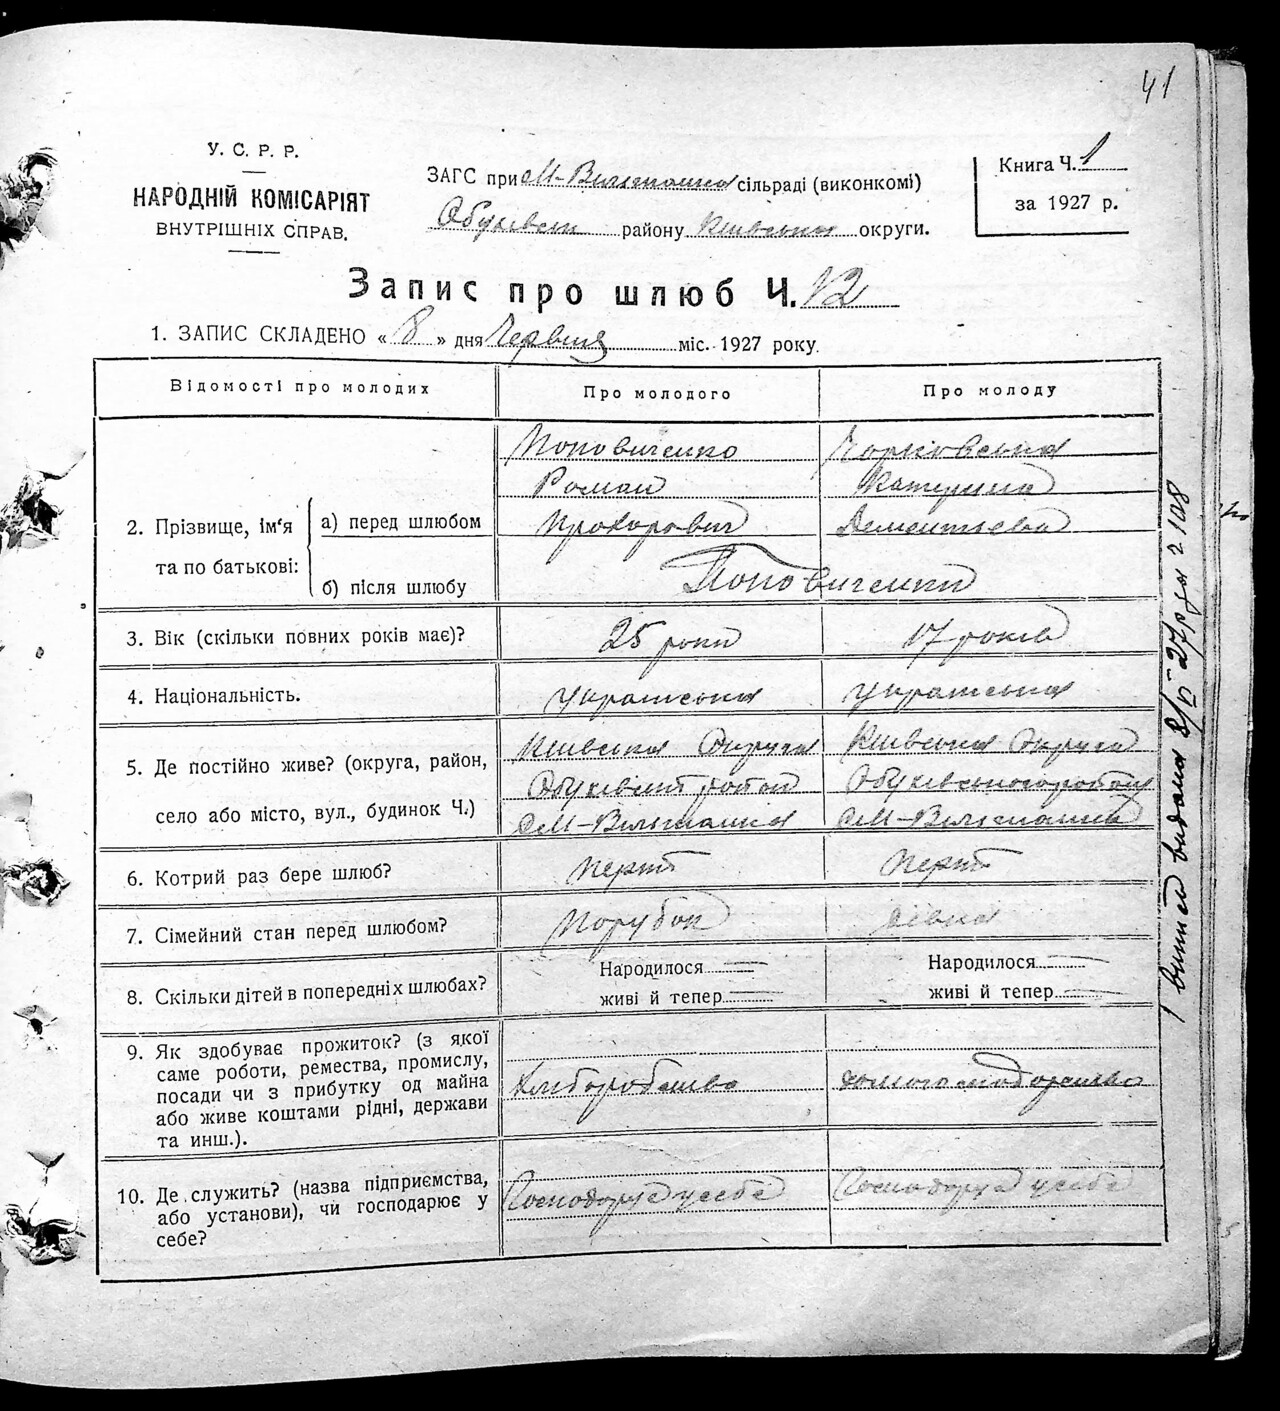 41
У. С. Р. Р.
НАРОДНІЙ КОМІСАРІЯТ
ВНУТРІШНІХ СПРАВ.
ЗАГС при М-Вильшанка сільраді (виконкомі)
Обухівськ району Київської округи.
Книга Ч. 1
за 1927 р.
Запис про шлюб Ч. 12
1. ЗАПИС СКЛАДЕНО « 8 » дня Червня міс. 1927 року.
Відомості про молодих
Про молодого
Про молоду
2. Прізвище, ім'я та по батькові:
а) перед шлюбом
Поповиченко
Роман
Прохорович
Катерина
Дементьева
б) після шлюбу
Поповиченки
3. Вік (скільки повних років має)?
25 роки
17 років
4. Національність.
Українська
Українська
5. Де постійно живе? (округа, район,
село або місто, вул., будинок Ч.)
Київська Округа
М-Вильшанка
Київська Округа
Обухівського району
М-Вильшанка
6. Котрий раз бере шлюб?
перший
перший
7. Сімейний стан перед шлюбом?
Порубок
дівка
8. Скільки дітей в попередніх шлюбах?
Народилося —
живі й тепер —
Народилося —
живі й тепер —
9. Як здобуває прожиток? (з якої
саме роботи, ремества, промислу,
посади чи з прибутку од майна
або живе коштами рідні, держави
та инш.).
Хліборобство
10. Де служить? (назва підприємства,
або установи), чи господарює у
себе?
Господарує у себе
Господарує у себе
1 виписа видана 8/VI 27 р за № 2108